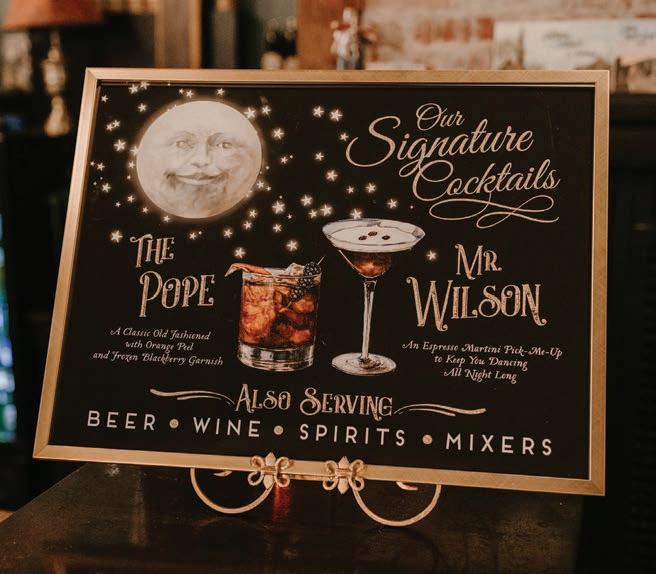 Our
Signature
Cocktails
The
Pope
A Classic Old Fashioned
with Orange Peel
and Frozen Blackberry Garnish
Mr.
Wilson
An Espresso Martini Pick-Me-Up
to Keep You Dancing
All Night Long
Also Serving
BEER • WINE • SPIRITS • MIXERS